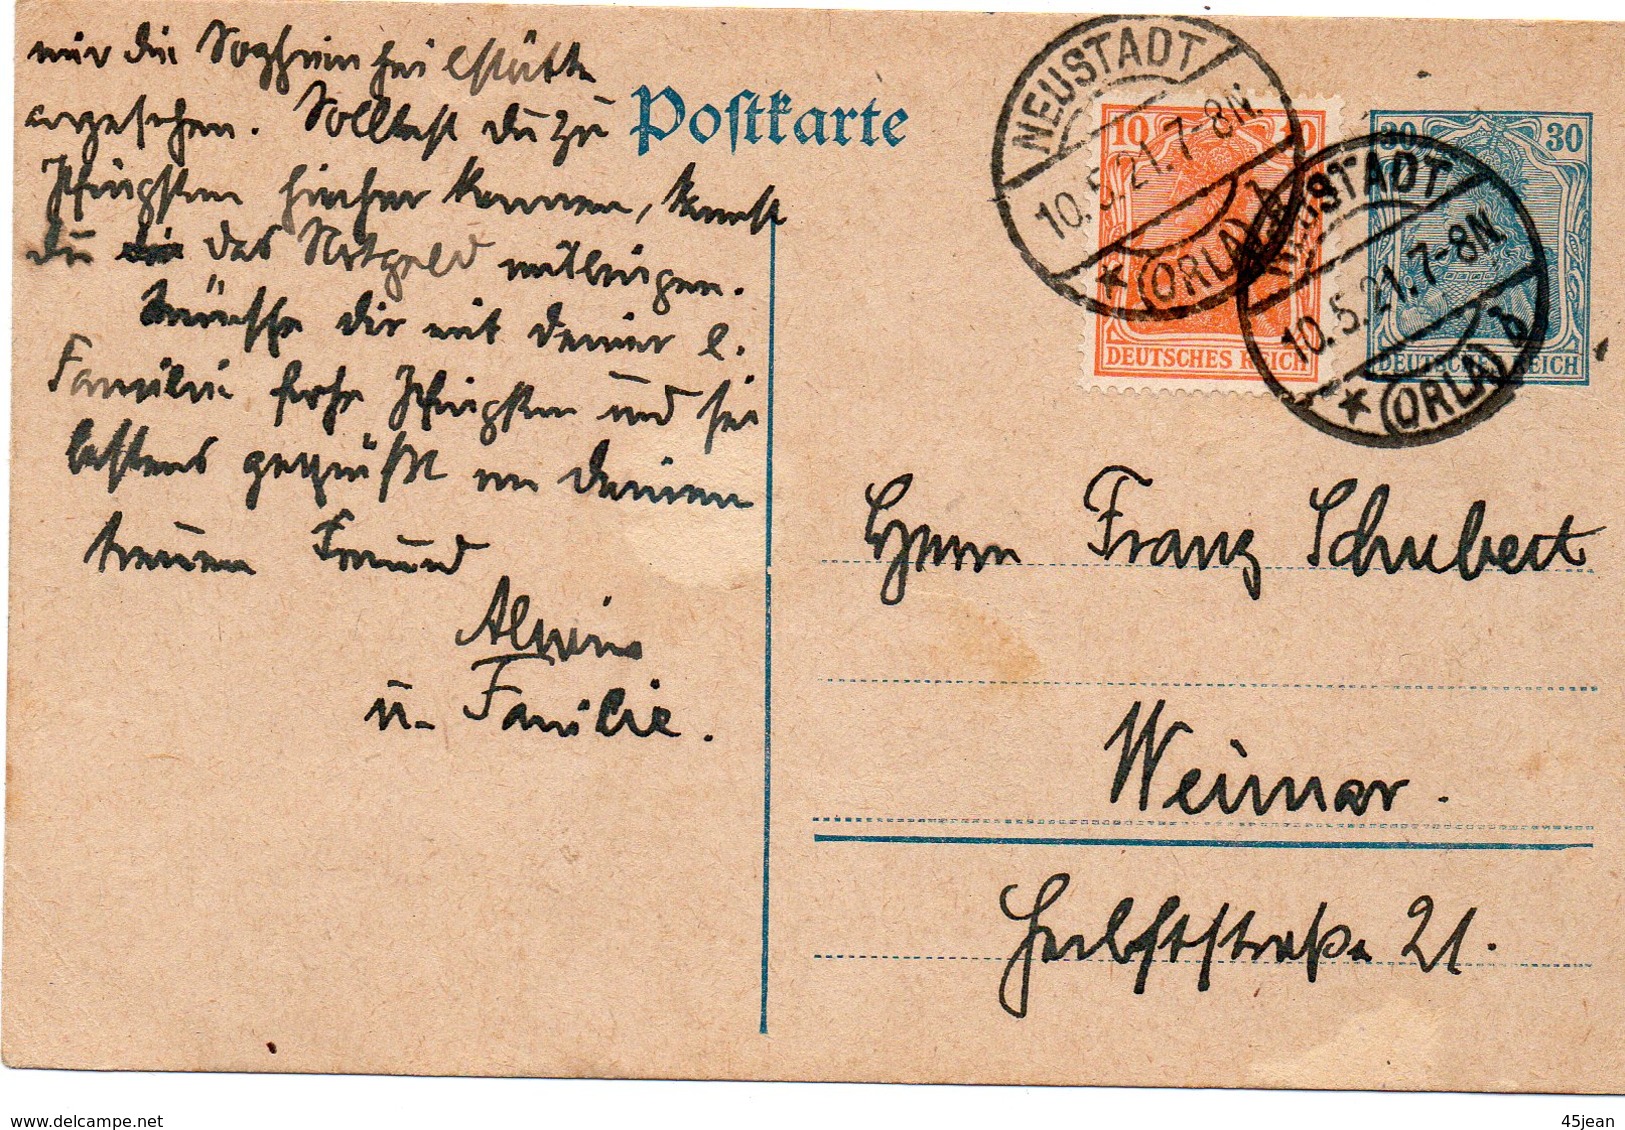 mir die Sophienheilstätte
angesehen. Solltest du zu
Pfingsten hierher kommen, kannst
du das Notgeld mitbringen.
Wünsche dir mit deiner l.
Familie frohe Pfingsten und sei
bestens gegrüßt von deinem
treuen Freund
Alwin
u. Familie.
Postkarte
NEUSTADT
10.5.21.7-8N.
* (ORLA) b
10 10
DEUTSCHES REICH
NEUSTADT
10.5.21.7-8N.
* (ORLA) b
30 30
DEUTSCHES REICH
Herrn Franz Schubert
Weimar.
Herbststraße 21.
www.delcampe.net
45jean